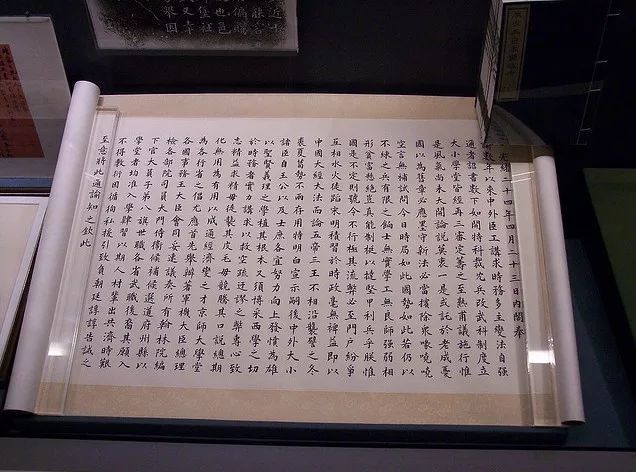 光緒二十四年四月二十三日內閣奉
諭數年以來中外臣工講求時務多主變法自強
邇者詔書數下如開特科裁冗兵改武科制度立
大小學堂皆經再三審定籌之至熟甫議施行惟
是風氣尚未大開論說莫衷一是或託於老成憂
國以為舊章必應墨守新法必當擯除眾喙嘵嘵
空言無補試問今日時局如此國勢如此若仍以
不練之兵有限之餉士無實學工無良師強弱相
形貧富懸絕豈真能制梃以撻堅甲利兵乎朕惟
國是不定則號令不行極其流弊必至門戶紛爭
互相水火徒蹈宋明積習於時政毫無裨益即以
中國大經大法而論五帝三王不相沿襲譬之冬
裘夏葛勢不兩存用特明白宣示嗣後中外大小
諸臣自王公以及士庶各宜努力向上發憤為雄
以聖賢義理之學植其根本又須博采西學之切
於時務者實力講求以救空疏迂謬之弊專心致
志精益求精毋徒襲其皮毛毋競騰其口說總期
化無用為有用以成通經濟變之才京師大學堂
為各行省之倡尤應首先舉辦著軍機大臣總理
各國事務王大臣會同妥速議奏所有翰林院編
檢各部院司員大門侍衛候補候選道府州縣以
下官大員子弟八旗世職各省武職後裔其願入
學堂者均准入學肄習以期人材輩出共濟時艱
不得敷衍因循徇私援引致負朝廷諄諄告誡之
至意將此通諭知之欽此